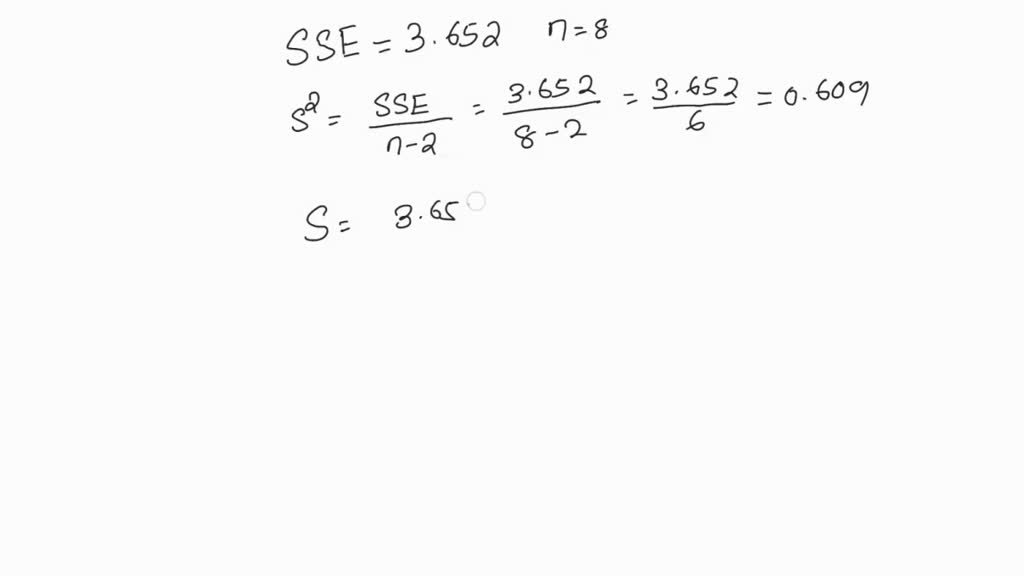 SSE = 3.652 n = 8
S² = SSE/n-2 = 3.652/8-2 = 3.652/6 = 0.609
S = 3.65